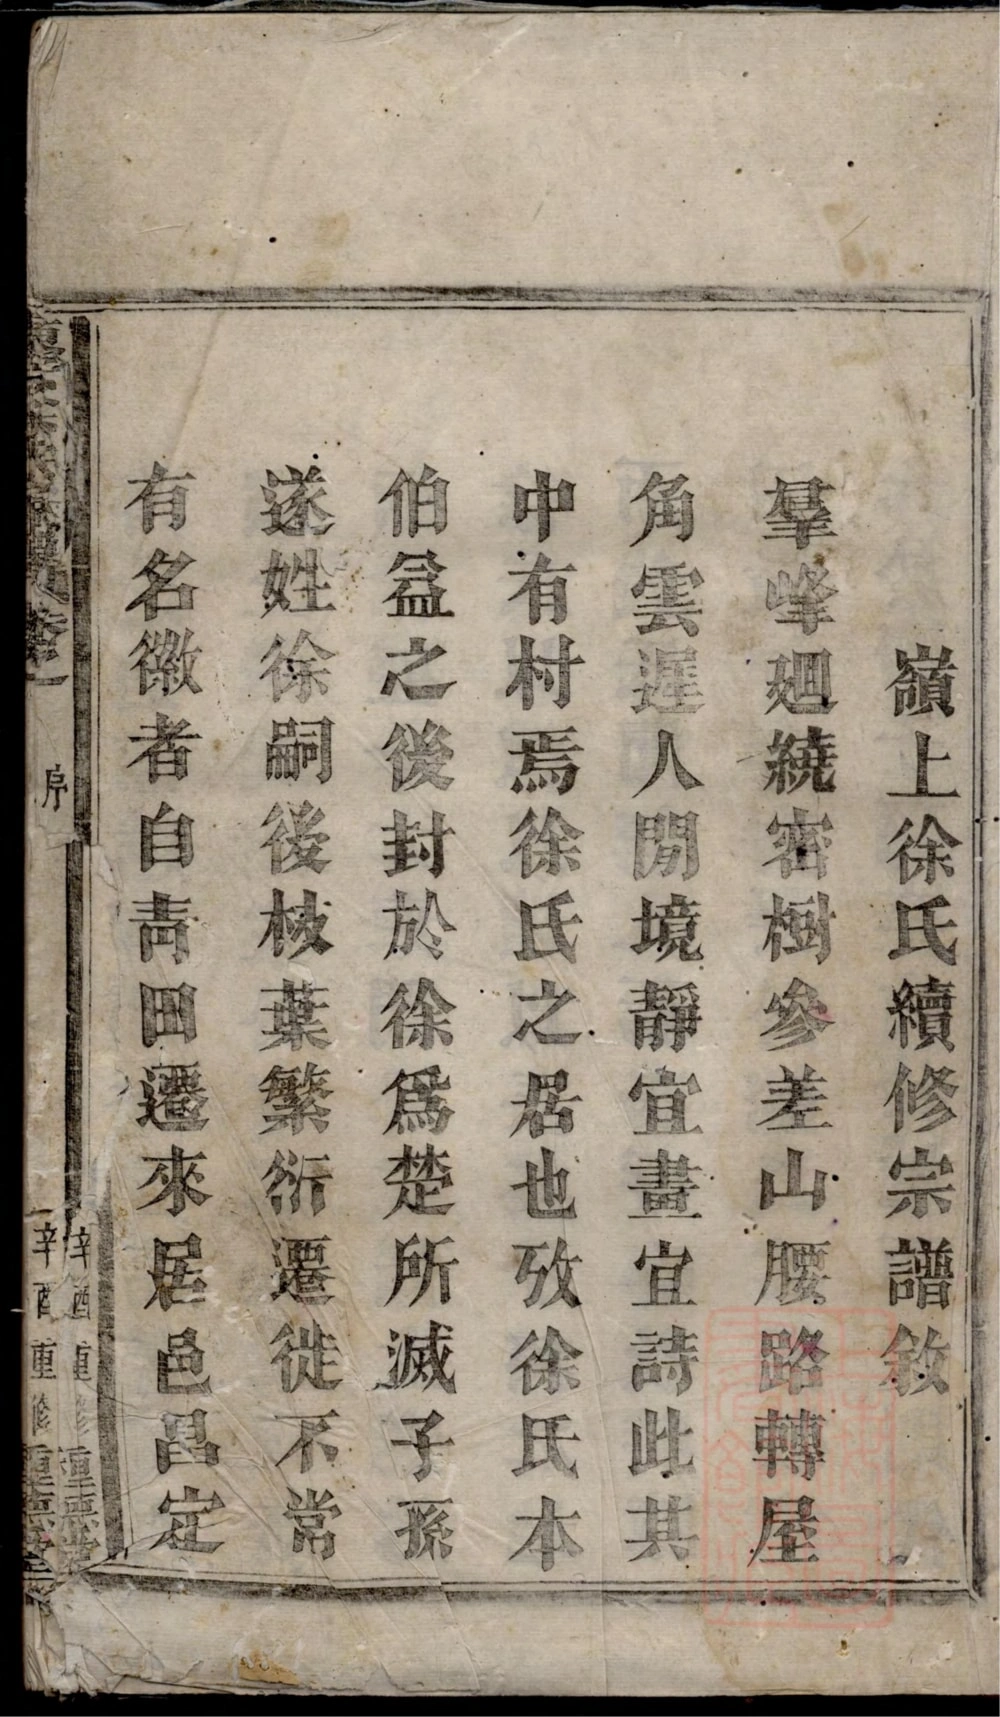 嶺上徐氏續修宗譜敘
羣峰廻繞密樹參差山腰路轉屋
角雲遲人閒境靜宜畫宜詩此其
中有村焉徐氏之居也攷徐氏本
伯益之後封於徐爲楚所滅子孫
遂姓徐嗣後枝葉繁衍遷徙不常
有名徽者自青田遷來居邑昌定
序
辛酉重修
辛酉重修